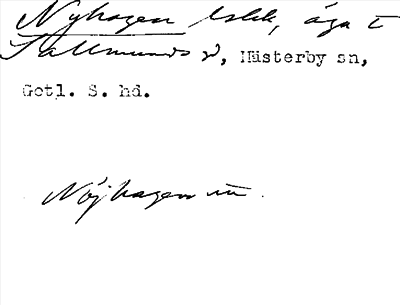 Nyhagen äga t
Sallmunds , Mästerby sn,
Gotl. S. hd.
Nöjhagen